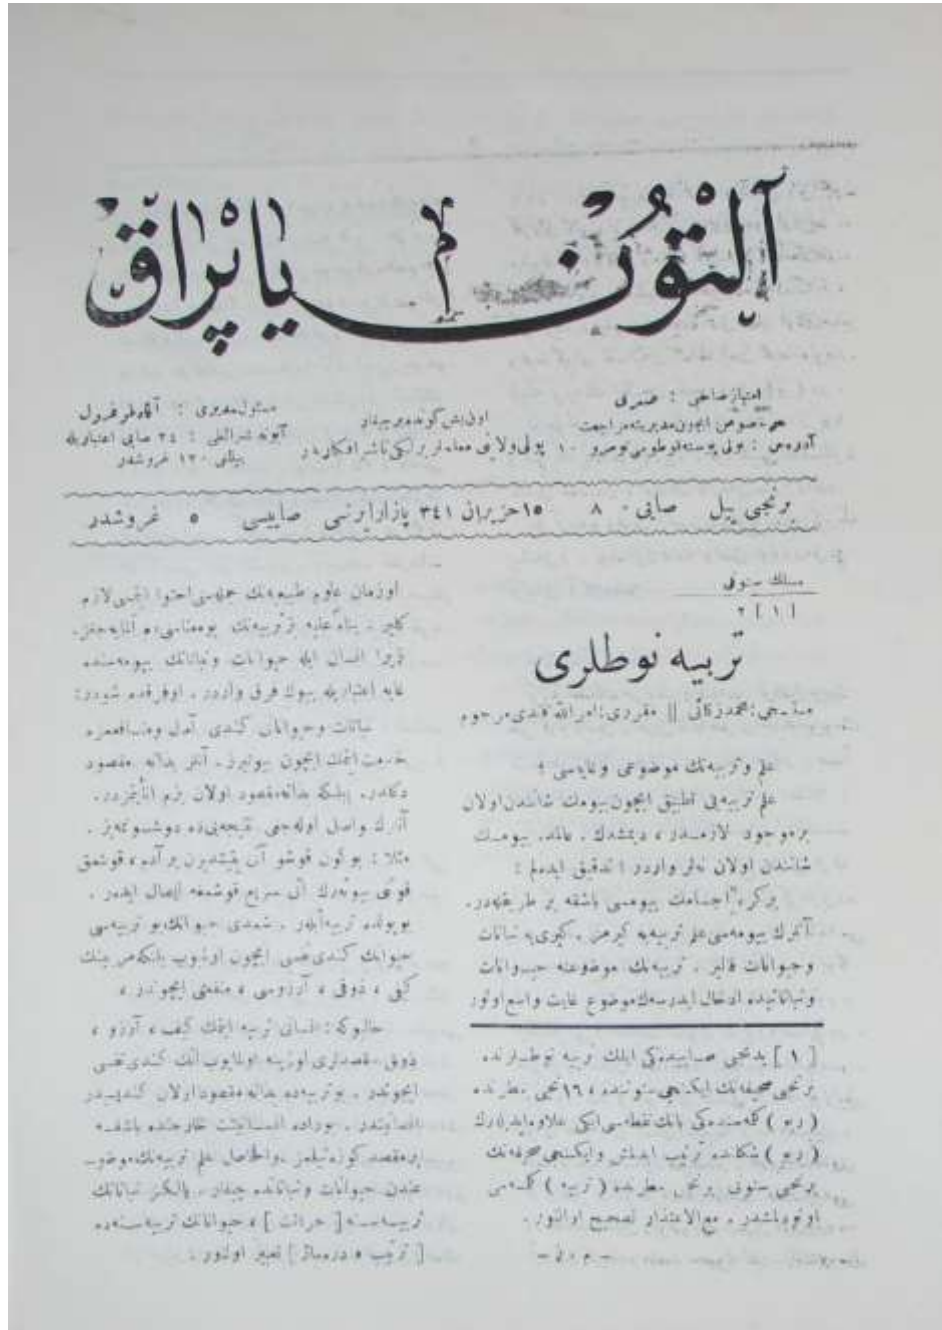 آلتون یاپراق
امتیاز صاحبی : صبری
هر خصوص ایچون مدیریته مراجعت
آدره‌س : بولی پوسته قوطوسی نومرو ۱۰
اون بش كونده بر چیقار
بولی ولایتی معلملر برلكی ناشر افكاریدر
مسئول مدیری :
آبونه شرائطی : ۲٤ صایی اعتباریله
ییللغی ۱۲۰ غروشدر
برنجی ییل صایی ۸ ۱٥ حزیران ۳٤۱ پازارایرتسی صاییسی ٥ غروشدر
مسلك ستونی
۲ [ ۱ ]
تربیه نوطلری
مقرری : امرالله افندی مرحوم
علم و تربیه‌نك موضوعی و غایه‌سی :
علم تربیه‌یی تطبیق ایچون بیومك شانندن اولان
بر موجود لازمدر ، دیمشدك . بیومك
شانندن اولان نه‌لر واردر ؛ تدقیق ایده‌لم :
بركره اجسامك بیومسی باشقه بر طریقله‌در .
آنلرك بیومه‌سی علم تربیه‌یه كیرمز . كیری‌یه نباتات
و حیوانات قالیر . تربیه‌نك موضوعنه حیوانات
و نباتاتیده ادخال ایدرسه‌ك موضوع غایت واسع اولور
[ ۱ ] یدنجی صاییده‌كی ایلك تربیه نوطلرنده
برنجی صحیفه‌نك ایكنجی ستوننده ، ۱٦ نجی سطرنده
( ربو ) كلمه‌سنده‌كی بانك نقطه‌سی ایكی علاوه ایدیله‌رك
( ریو ) شكلنده ترتیب ایدلمش و ایكنجی صحیفه‌نك
برنجی ستونی برنجی سطرنده ( تربیه ) كلمه‌سی
اونودلمشدر . مع الاعتذار تصحیح اولنور .
اوزمان علوم طبیعیه‌نك جمله‌سی احتوا ایتمسی لازم
كلیر . بناءً علیه تربیه‌نك بو معناسی‌ده آكلایه‌جغز .
زیرا انسان ایله حیوانات و نباتاتك بیومه‌سنده
غایه اعتباریله بیوك فرق واردر . او فرقده شودر :
نباتات و حیواناتی كندی امل و منافعمزه
خدمت ایتمك ایچون بیوتیرز . آنلر بذاته مقصود
دكلدر . بلكه بذاته مقصود اولان بزم املمزدر .
آنلرك واصل اوله‌جغی نتیجه‌یی‌ده دوشونمه‌یز .
مثلا : بوتون قوشو آتی یتیشدیرن بر آدم ، قوشمق
بو یولده تربیه ایدر . شمدی حیوانك بو تربیه‌سی
حیوانك كندی نفسی ایچون اولمیوب بلكه مربینك
كیفی ، ذوقی ، آرزوسی ، منفعتی ایچوندر ،
حالبوكه : انسانی تربیه ایتمك كیف ، آرزو ،
ذوق مقصدلری اوزرینه اولمایوب آنك كندی نفسی
ایچوندر . بو تربیه‌ده بذاته مقصود اولان كندیسیدر
انسانیتدر . بوراده انسانیتك خارجنده باشقه
بر مقصد كوزه‌دیلمز . والحاصل علم تربیه‌نك موضو-
عندن حیوانات و نباتات‌ده چیقار . یالكز نباتاتك
تربیه‌سنه [ حراثت ] ، حیواناتك تربیه‌سنه‌ده
تعبیر اولنور .